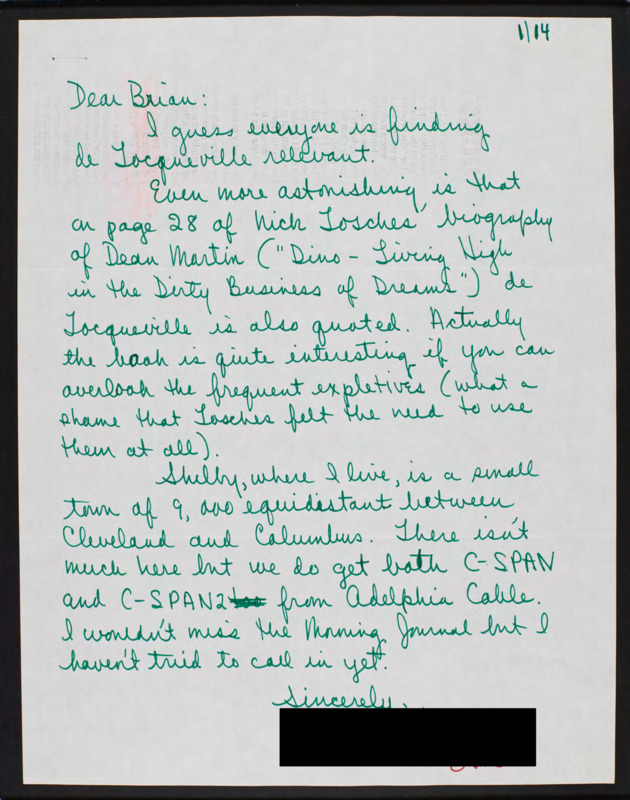 1/14
Dear Brian:
I guess everyone is finding
de Tocqueville relevant.
Even more astonishing is that
on page 28 of Nick Tosches' biography
of Dean Martin ("Dino - Living High
in the Dirty Business of Dreams") de
Tocqueville is also quoted. Actually
the book is quite interesting if you can
overlook the frequent expletives (what a
shame that Tosches felt the need to use
them at all).
Shelby, where I live, is a small
town of 9,000 equidistant between
Cleveland and Columbus. There isn't
much here but we do get both C-SPAN
and C-SPAN2 from Adelphia Cable.
I wouldn't miss the Morning Journal but I
haven't tried to call in yet.
Sincerely,